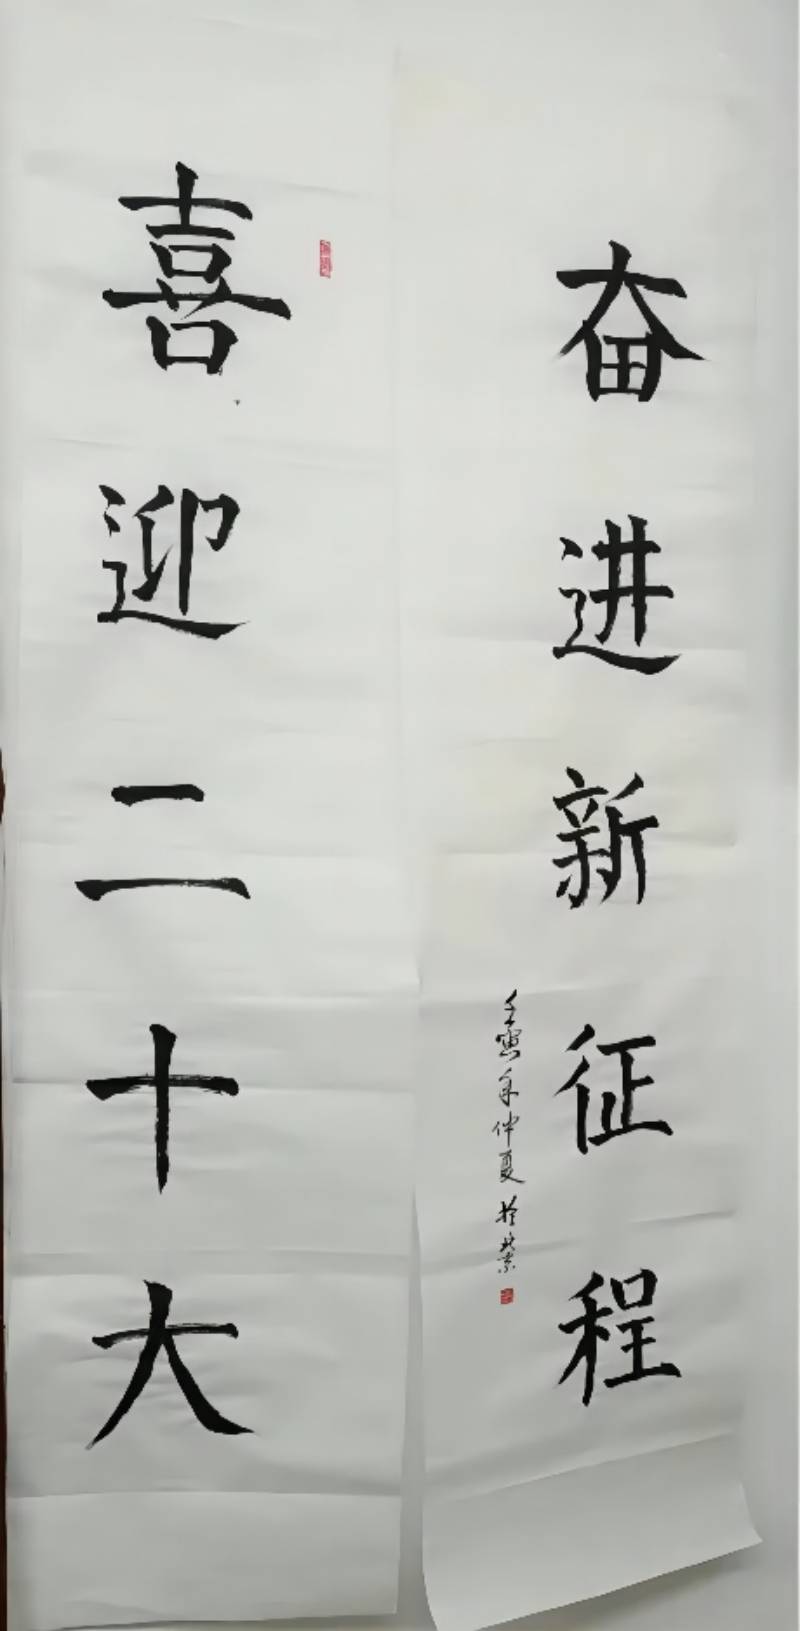 喜迎二十大
奋进新征程
壬寅年仲夏於北京